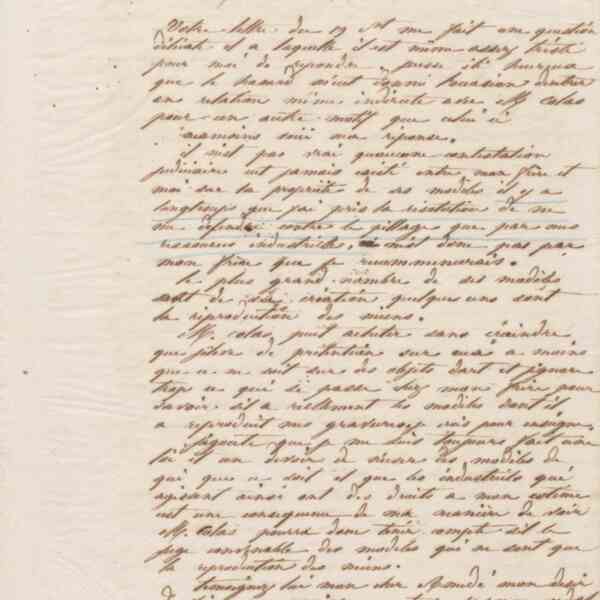 Votre lettre du 19 ct me fait une question
délicate et a laquelle il est même assez triste
pour moi de repondre. presse été heureux
que le hasard m'eut fourni l'occasion d'entrer
en relation même indirecte avec M. Colas
pour un autre motif que celui ci
néanmoins voici ma réponse.
il n'est pas vrai qu'aucune contestation
judiciaire ait jamais existé entre mon frere et
moi sur la propriété de ses modèles il y a
longtemps que j'ai pris la résolution de ne
me défendre contre le pillage que par mes
ressources industrielles, ce n'est donc pas par
mon frere que je recommencerais.
le plus grand nombre de ses modèles
sont de sa création quelques uns sont
la reproduction des miens.
M. Colas, peut acheter sans craindre
que j'élève de prétention sur eux a moins
que ce ne soit sur des objets d'art et j'ignore
trop ce qui se passe chez mon frere pour
savoir s'il a réellement les modèles dont il
a reproduit mes gravures pour enseigne.
J'ajoute que je me suis toujours fait une
loi et un devoir de refuser des modèles de
qui que ce soit et que les industriels qui
agissent ainsi ont des droits a mon estime
est une consequence de ma manière de voir
M. Colas pourra donc tenir compte s'il le
juge convenable des modèles qui ne sont que
la reproduction des miens.
temoignez lui mon cher Armede mon desir